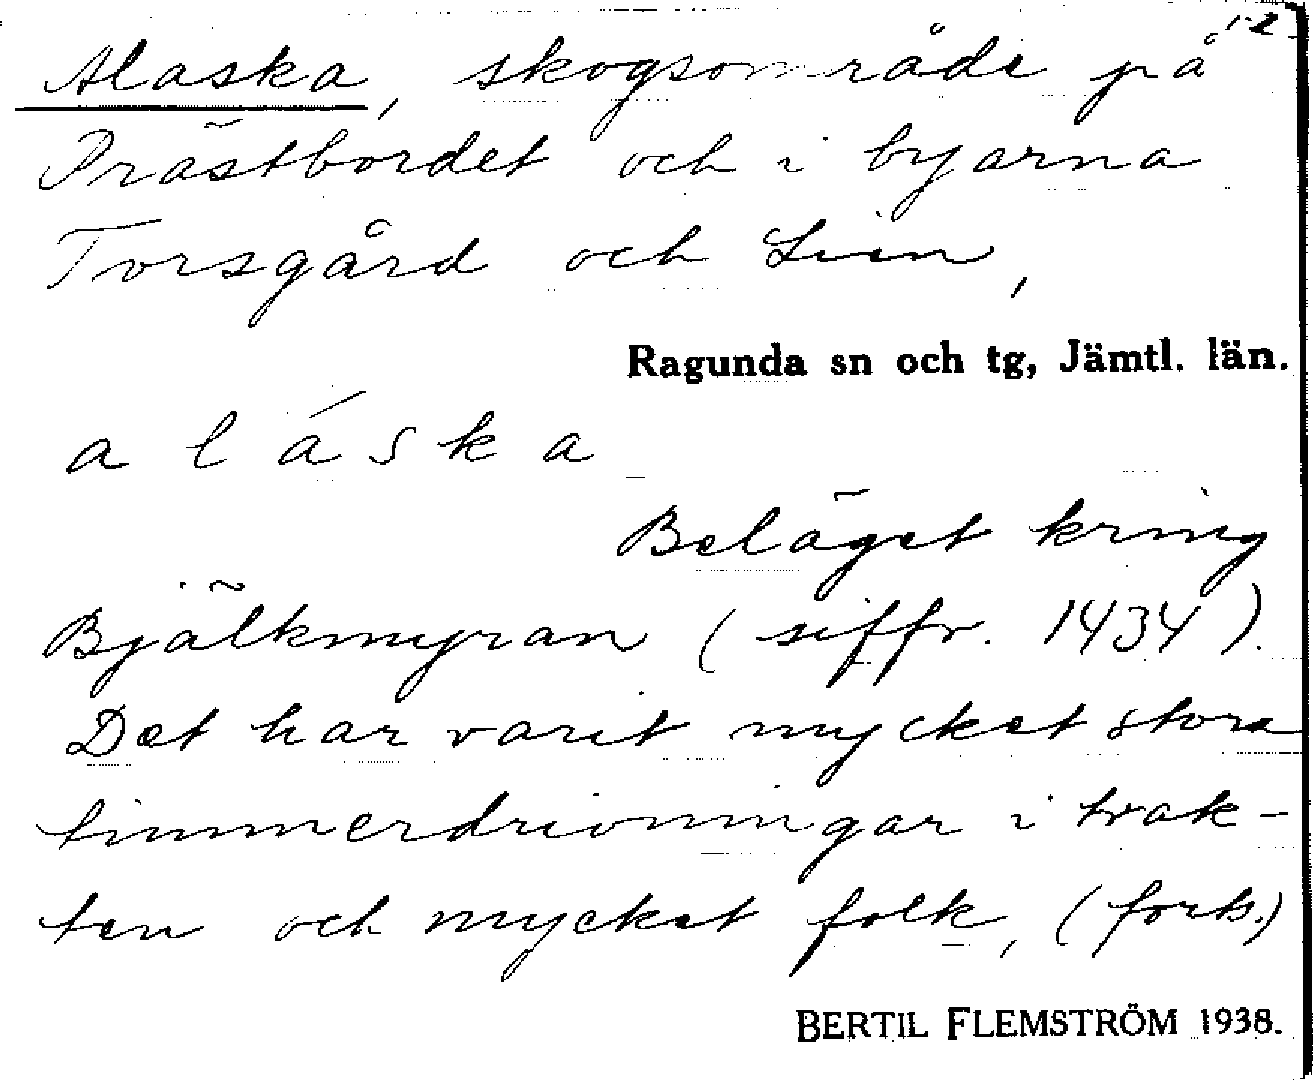 1-2
Alaska, skogsområde på
Prästbordet och i byarna
Torsgård och Lien,
Ragunda sn och tg, Jämtl. län.
a l á s k a
Beläget kring
Bjälkmyran (siffr. 1434).
Det har varit mycket stora
timmerdrivningar i trak-
ten och mycket folk, (forts.)
BERTIL FLEMSTRÖM 1938.